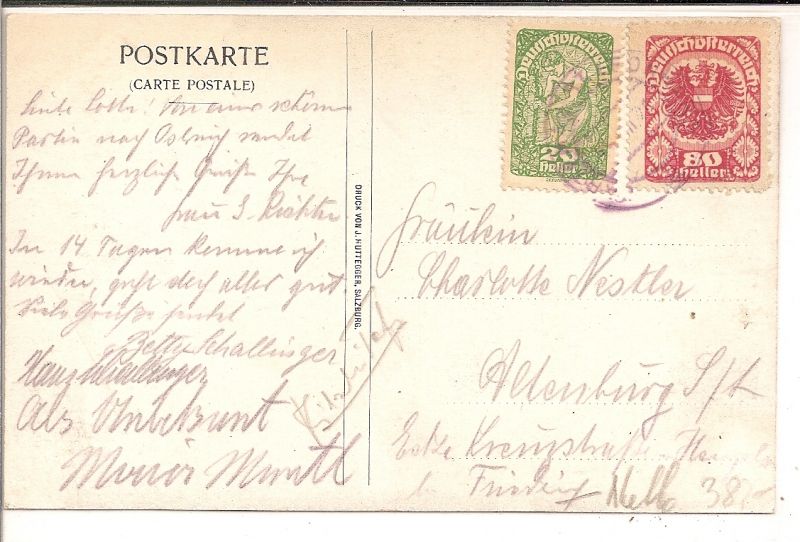 POSTKARTE
(CARTE POSTALE)
Liebe Lotte! Von einer schönen
Partie nach Ostreich sendet
Ihnen herzliche Grüße Ihre
Frau J. Richter
In 14 Tagen komme ich
wieder, geht doch alles gut
Viele Grüße sendet
Betty Schallinger
Als Unbekannt
DRUCK VON J. HUTTEGGER, SALZBURG.
Deutschösterreich
20
Heller
Deutschösterreich
80
Heller
Fräulein
Charlotte Nestler
Altenburg S/A
Ecke Kreuzstraße
b/ Friedrich
38